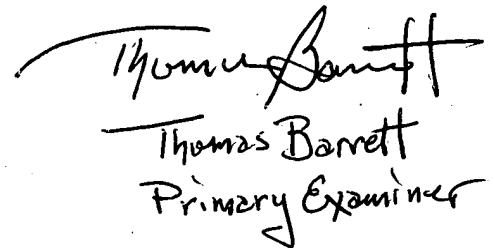 Thomas Barrett
Thomas Barrett
Primary Examiner